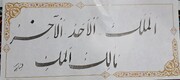 الملك الأحد الآخر
مالك الملك